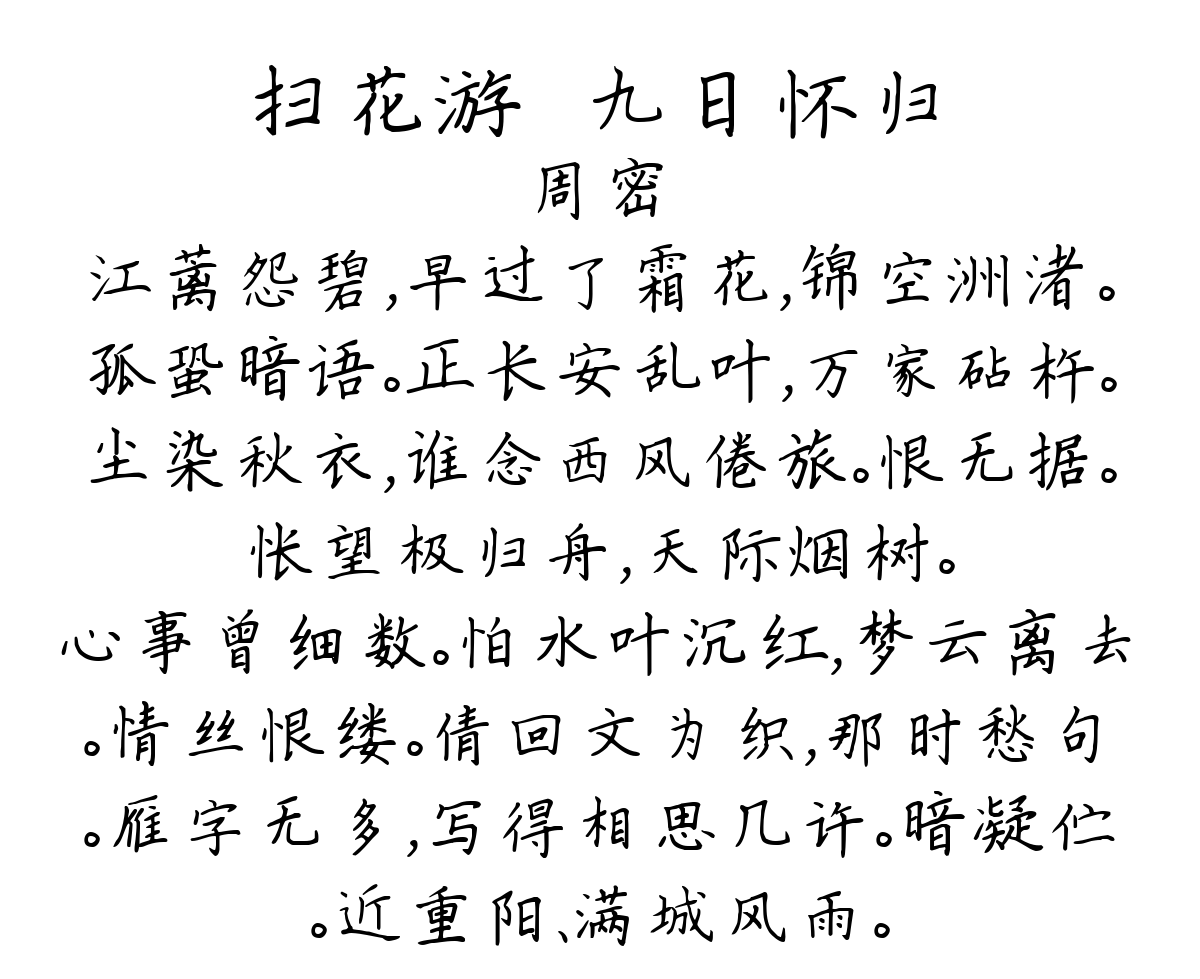 扫花游 九日怀归
周密
江蓠怨碧,早过了霜花,锦空洲渚。
孤蛩暗语。正长安乱叶,万家砧杵。
尘染秋衣,谁念西风倦旅。恨无据。
怅望极归舟,天际烟树。
心事曾细数。怕水叶沉红,梦云离去
。情丝恨缕。倩回文为织,那时愁句
。雁字无多,写得相思几许。暗凝伫
。近重阳、满城风雨。